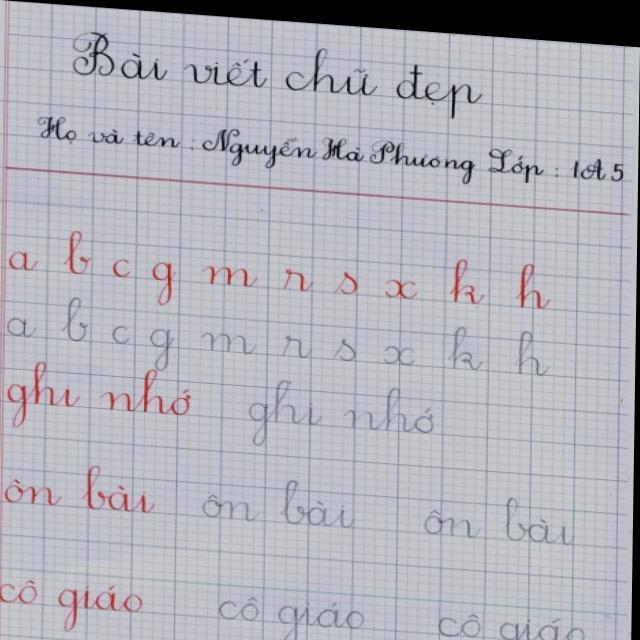 Bài viết chữ đẹp
Họ và tên : Nguyễn Hà Phương Lớp : 1A5
a b c g m r s x k h
a b c g m r s x k h
ghi nhớ ghi nhớ
ôn bài ôn bài ôn bài
cô giáo cô giáo cô giáo